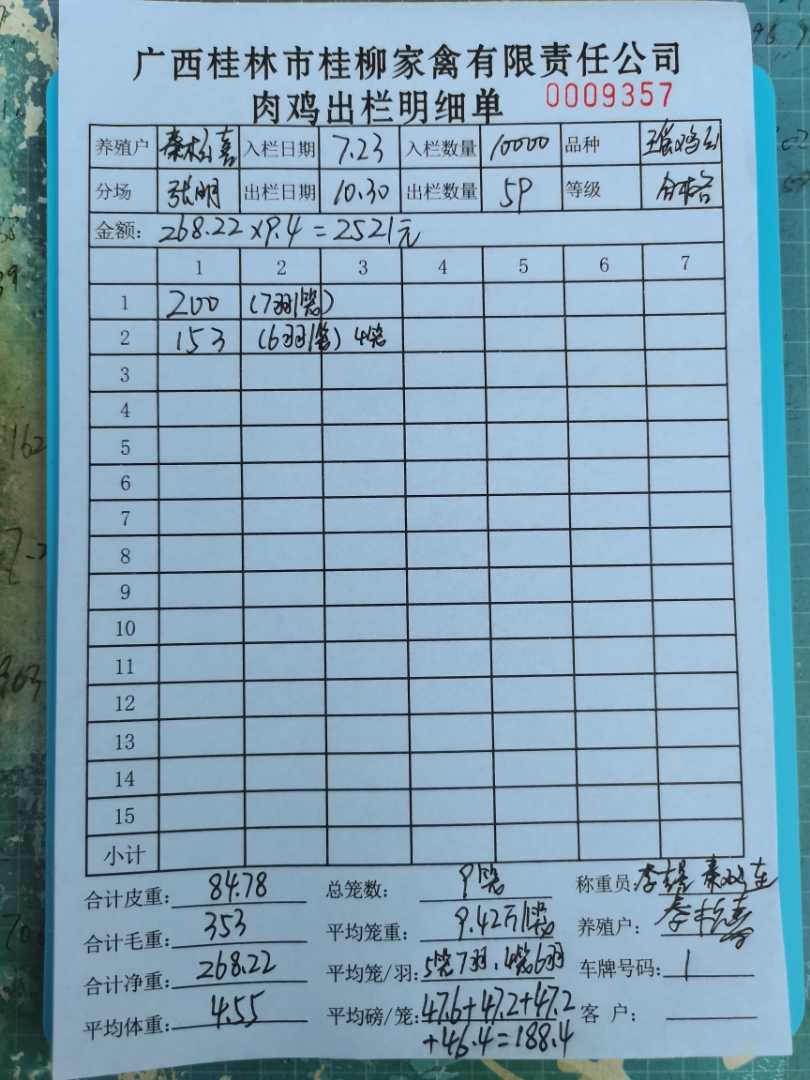 广西桂林市桂柳家禽有限责任公司
肉鸡出栏明细单 0009357
养殖户 入栏日期 7.23 入栏数量 10000 品种
分场 张明 出栏日期 10.30 出栏数量 59 等级 合格
金额: 268.22×9.4=2521元
1 2 3 4 5 6 7
1 200 (7羽/笼)
2 153 (6羽/笼) 4笼
3
4
5
6
7
8
9
10
11
12
13
14
15
小计
合计皮重: 84.78 总笼数: 9笼 称重员:
合计毛重: 353 平均笼重: 9.42斤/笼 养殖户:
合计净重: 268.22 平均笼/羽: 5笼7羽、4笼6羽 车牌号码: 1
平均体重: 4.55 平均磅/笼: 47.6+47.2+47.2 客 户:
+46.4=188.4